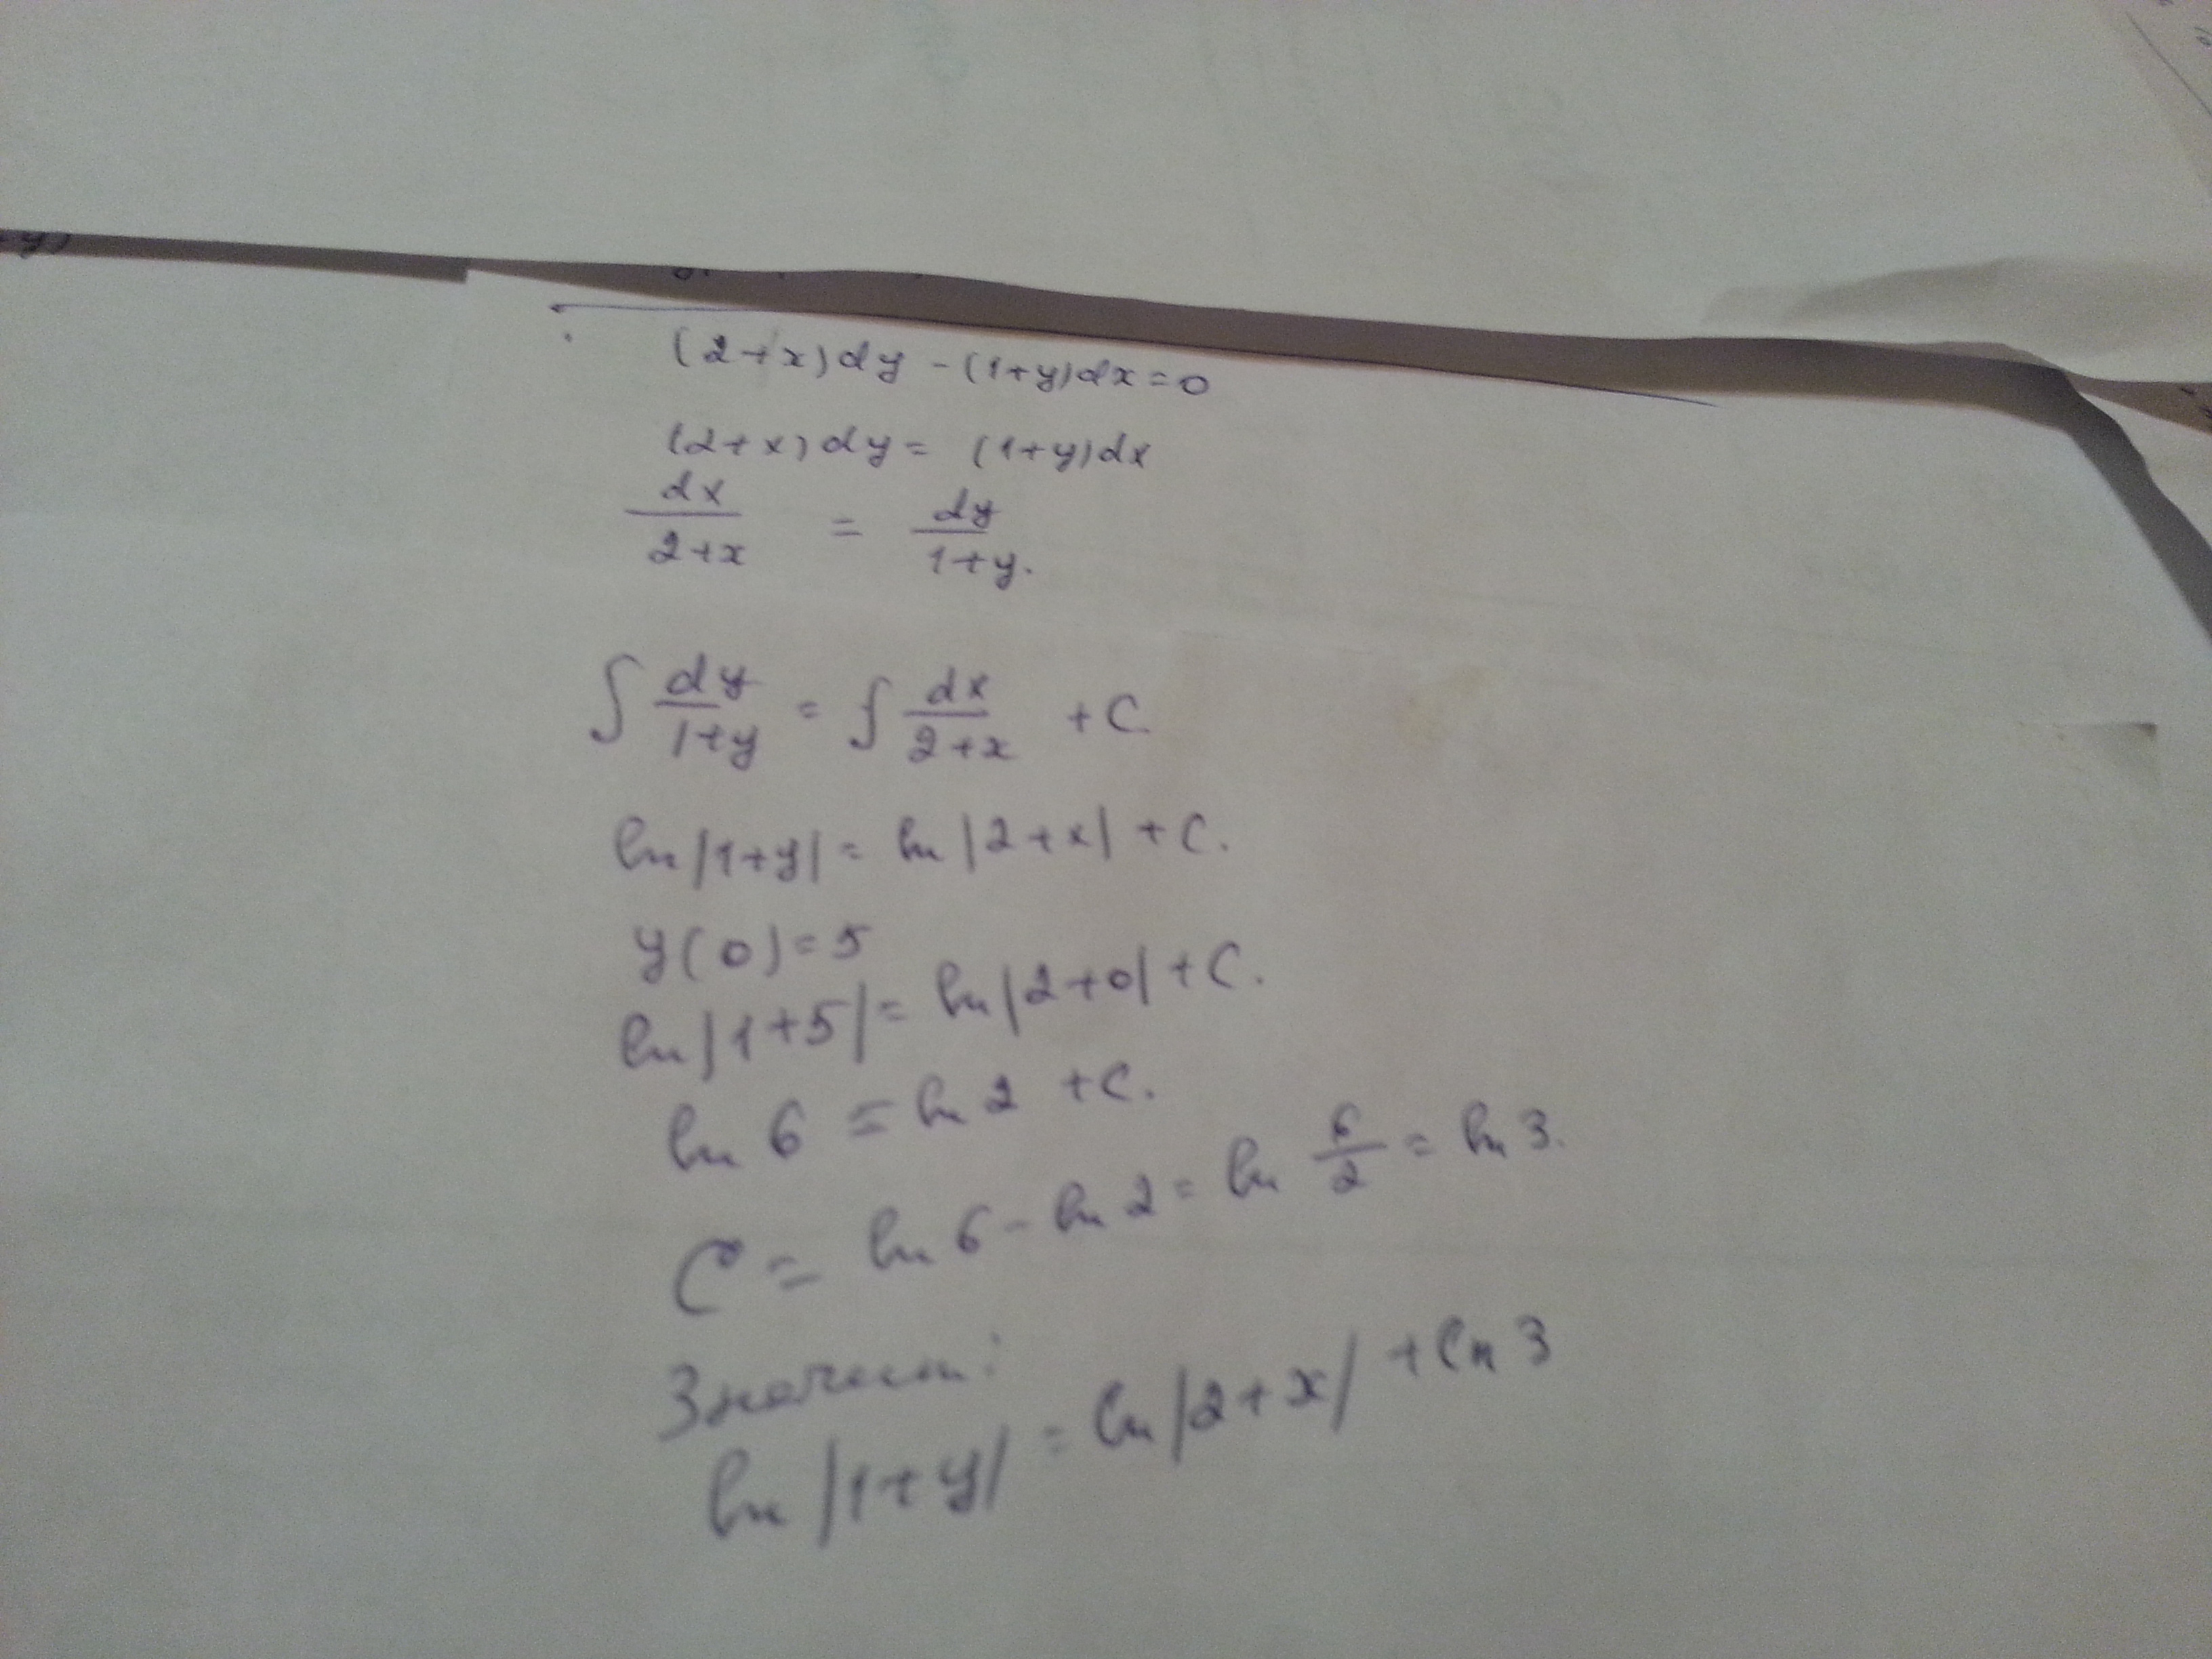 (2+x)dy-(1+y)dx=0
(2+x)dy= (1+y)dx
dx/2+x = dy/1+y.
∫ dy/1+y = ∫ dx/2+x +C.
ln|1+y|= ln|2+x|+C.
y(0)=5
ln|1+5|= ln|2+0|+C.
ln 6 = ln 2 +C.
C= ln 6 - ln 2 = ln 6/2 = ln 3.
Значит:
ln|1+y| = ln|2+x| +ln 3